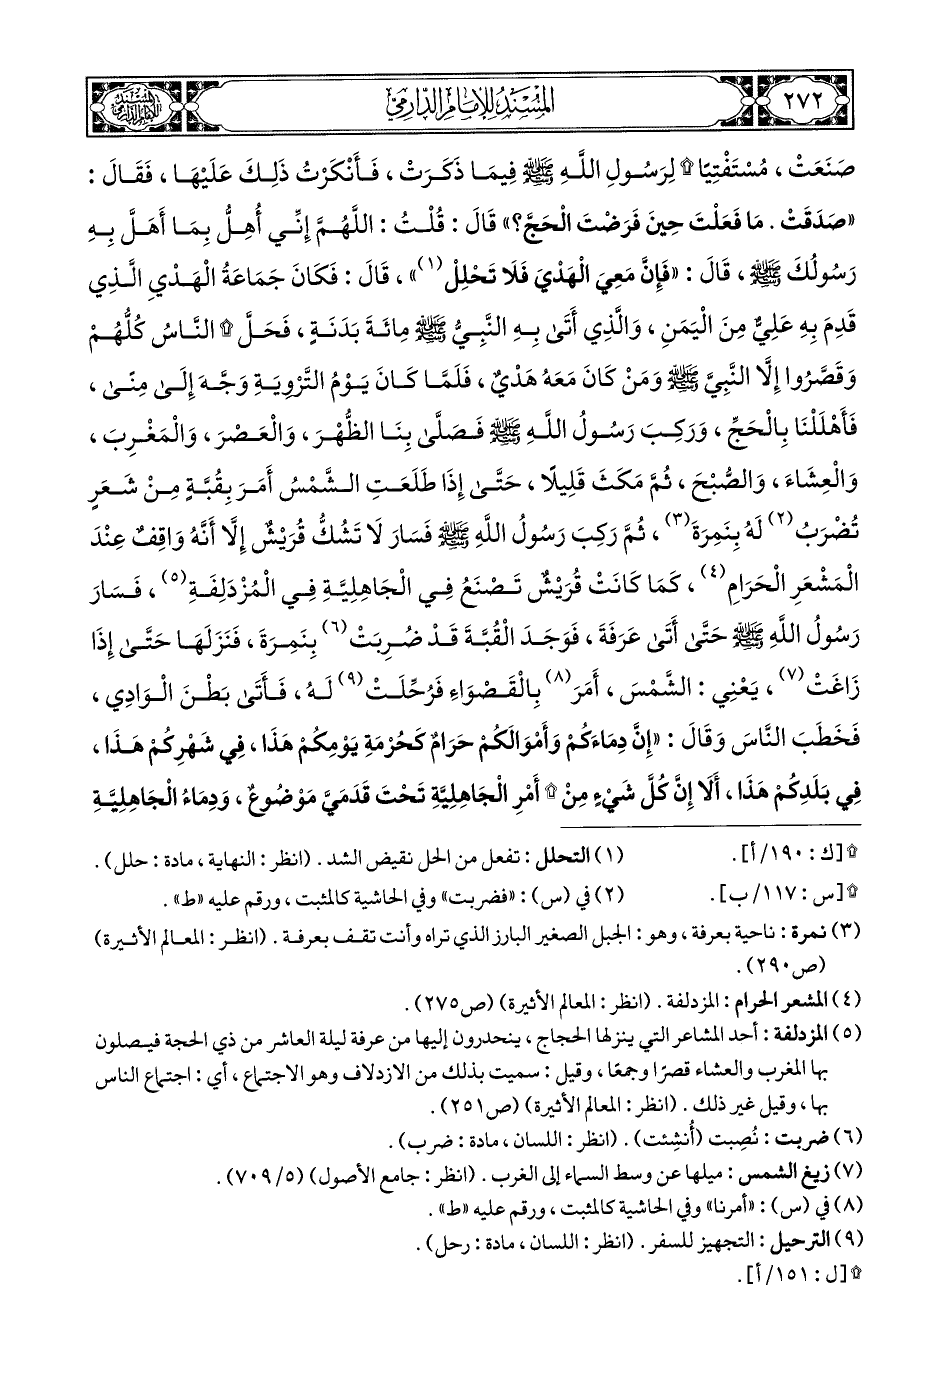 ٢٧٢
المسند للإمام الدارمي
صَنَعَتْ، مُسْتَفْتِيًا ۩ لِرَسُولِ اللَّهِ ﷺ فِيمَا ذَكَرَتْ، فَأَنْكَرْتُ ذَلِكَ عَلَيْهَا، فَقَالَ:
«صَدَقَتْ. مَا فَعَلْتَ حِينَ فَرَضْتَ الْحَجَّ؟» قَالَ: قُلْتُ: اللَّهُمَّ إِنِّي أُهِلُّ بِمَا أَهَلَّ بِهِ
رَسُولُكَ ﷺ، قَالَ: «فَإِنَّ مَعِيَ الْهَدْيَ فَلَا تَحْلِلْ(١)»، قَالَ: فَكَانَ جَمَاعَةُ الْهَدْيِ الَّذِي
قَدِمَ بِهِ عَلِيٌّ مِنَ الْيَمَنِ، وَالَّذِي أَتَى بِهِ النَّبِيُّ ﷺ مِائَةَ بَدَنَةٍ، فَحَلَّ ۩ النَّاسُ كُلُّهُمْ
وَقَصَّرُوا إِلَّا النَّبِيَّ ﷺ وَمَنْ كَانَ مَعَهُ هَدْيٌ، فَلَمَّا كَانَ يَوْمُ التَّرْوِيَةِ وَجَّهَ إِلَى مِنًى،
فَأَهْلَلْنَا بِالْحَجِّ، وَرَكِبَ رَسُولُ اللَّهِ ﷺ فَصَلَّى بِنَا الظُّهْرَ، وَالْعَصْرَ، وَالْمَغْرِبَ،
وَالْعِشَاءَ، وَالصُّبْحَ، ثُمَّ مَكَثَ قَلِيلًا، حَتَّى إِذَا طَلَعَتِ الشَّمْسُ أَمَرَ بِقُبَّةٍ مِنْ شَعَرٍ
تُضْرَبُ(٢) لَهُ بِنَمِرَةَ(٣)، ثُمَّ رَكِبَ رَسُولُ اللَّهِ ﷺ فَسَارَ لَا تَشُكُّ قُرَيْشٌ إِلَّا أَنَّهُ وَاقِفٌ عِنْدَ
الْمَشْعَرِ الْحَرَامِ(٤)، كَمَا كَانَتْ قُرَيْشٌ تَصْنَعُ فِي الْجَاهِلِيَّةِ فِي الْمُزْدَلِفَةِ(٥)، فَسَارَ
رَسُولُ اللَّهِ ﷺ حَتَّى أَتَى عَرَفَةَ، فَوَجَدَ الْقُبَّةَ قَدْ ضُرِبَتْ(٦) بِنَمِرَةَ، فَنَزَلَهَا حَتَّى إِذَا
زَاغَتْ(٧)، يَعْنِي: الشَّمْسَ، أَمَرَ(٨) بِالْقَصْوَاءِ فَرُحِّلَتْ(٩) لَهُ، فَأَتَى بَطْنَ الْوَادِي،
فَخَطَبَ النَّاسَ وَقَالَ: «إِنَّ دِمَاءَكُمْ وَأَمْوَالَكُمْ حَرَامٌ كَحُرْمَةِ يَوْمِكُمْ هَذَا، فِي شَهْرِكُمْ هَذَا،
فِي بَلَدِكُمْ هَذَا، أَلَا إِنَّ كُلَّ شَيْءٍ مِنْ ۩ أَمْرِ الْجَاهِلِيَّةِ تَحْتَ قَدَمَيَّ مَوْضُوعٌ، وَدِمَاءُ الْجَاهِلِيَّةِ
۩[ك: ١٩٠/أ]. (١) التحلل: تفعل من الحل نقيض الشد. (انظر: النهاية، مادة: حلل).
۩[س: ١١٧/ب]. (٢) في (س): «فضربت» وفي الحاشية كالمثبت، ورقم عليه «ط».
(٣) نمرة: ناحية بعرفة، وهو: الجبل الصغير البارز الذي تراه وأنت تقف بعرفة. (انظر: المعالم الأثيرة)
(ص٢٩٠).
(٤) المشعر الحرام: المزدلفة. (انظر: المعالم الأثيرة) (ص٢٧٥).
(٥) المزدلفة: أحد المشاعر التي ينزلها الحجاج، ينحدرون إليها من عرفة ليلة العاشر من ذي الحجة فيصلون
بها المغرب والعشاء قصرًا وجمعًا، وقيل: سميت بذلك من الازدلاف وهو الاجتماع، أي: اجتماع الناس
بها، وقيل غير ذلك. (انظر: المعالم الأثيرة) (ص٢٥١).
(٦) ضربت: نُصِبت (أُنشِئت). (انظر: اللسان، مادة: ضرب).
(٧) زيغ الشمس: ميلها عن وسط السماء إلى الغرب. (انظر: جامع الأصول) (٥/٧٠٩).
(٨) في (س): «أمرنا» وفي الحاشية كالمثبت، ورقم عليه «ط».
(٩) الترحيل: التجهيز للسفر. (انظر: اللسان، مادة: رحل).
۩[ل: ١٥١/أ].